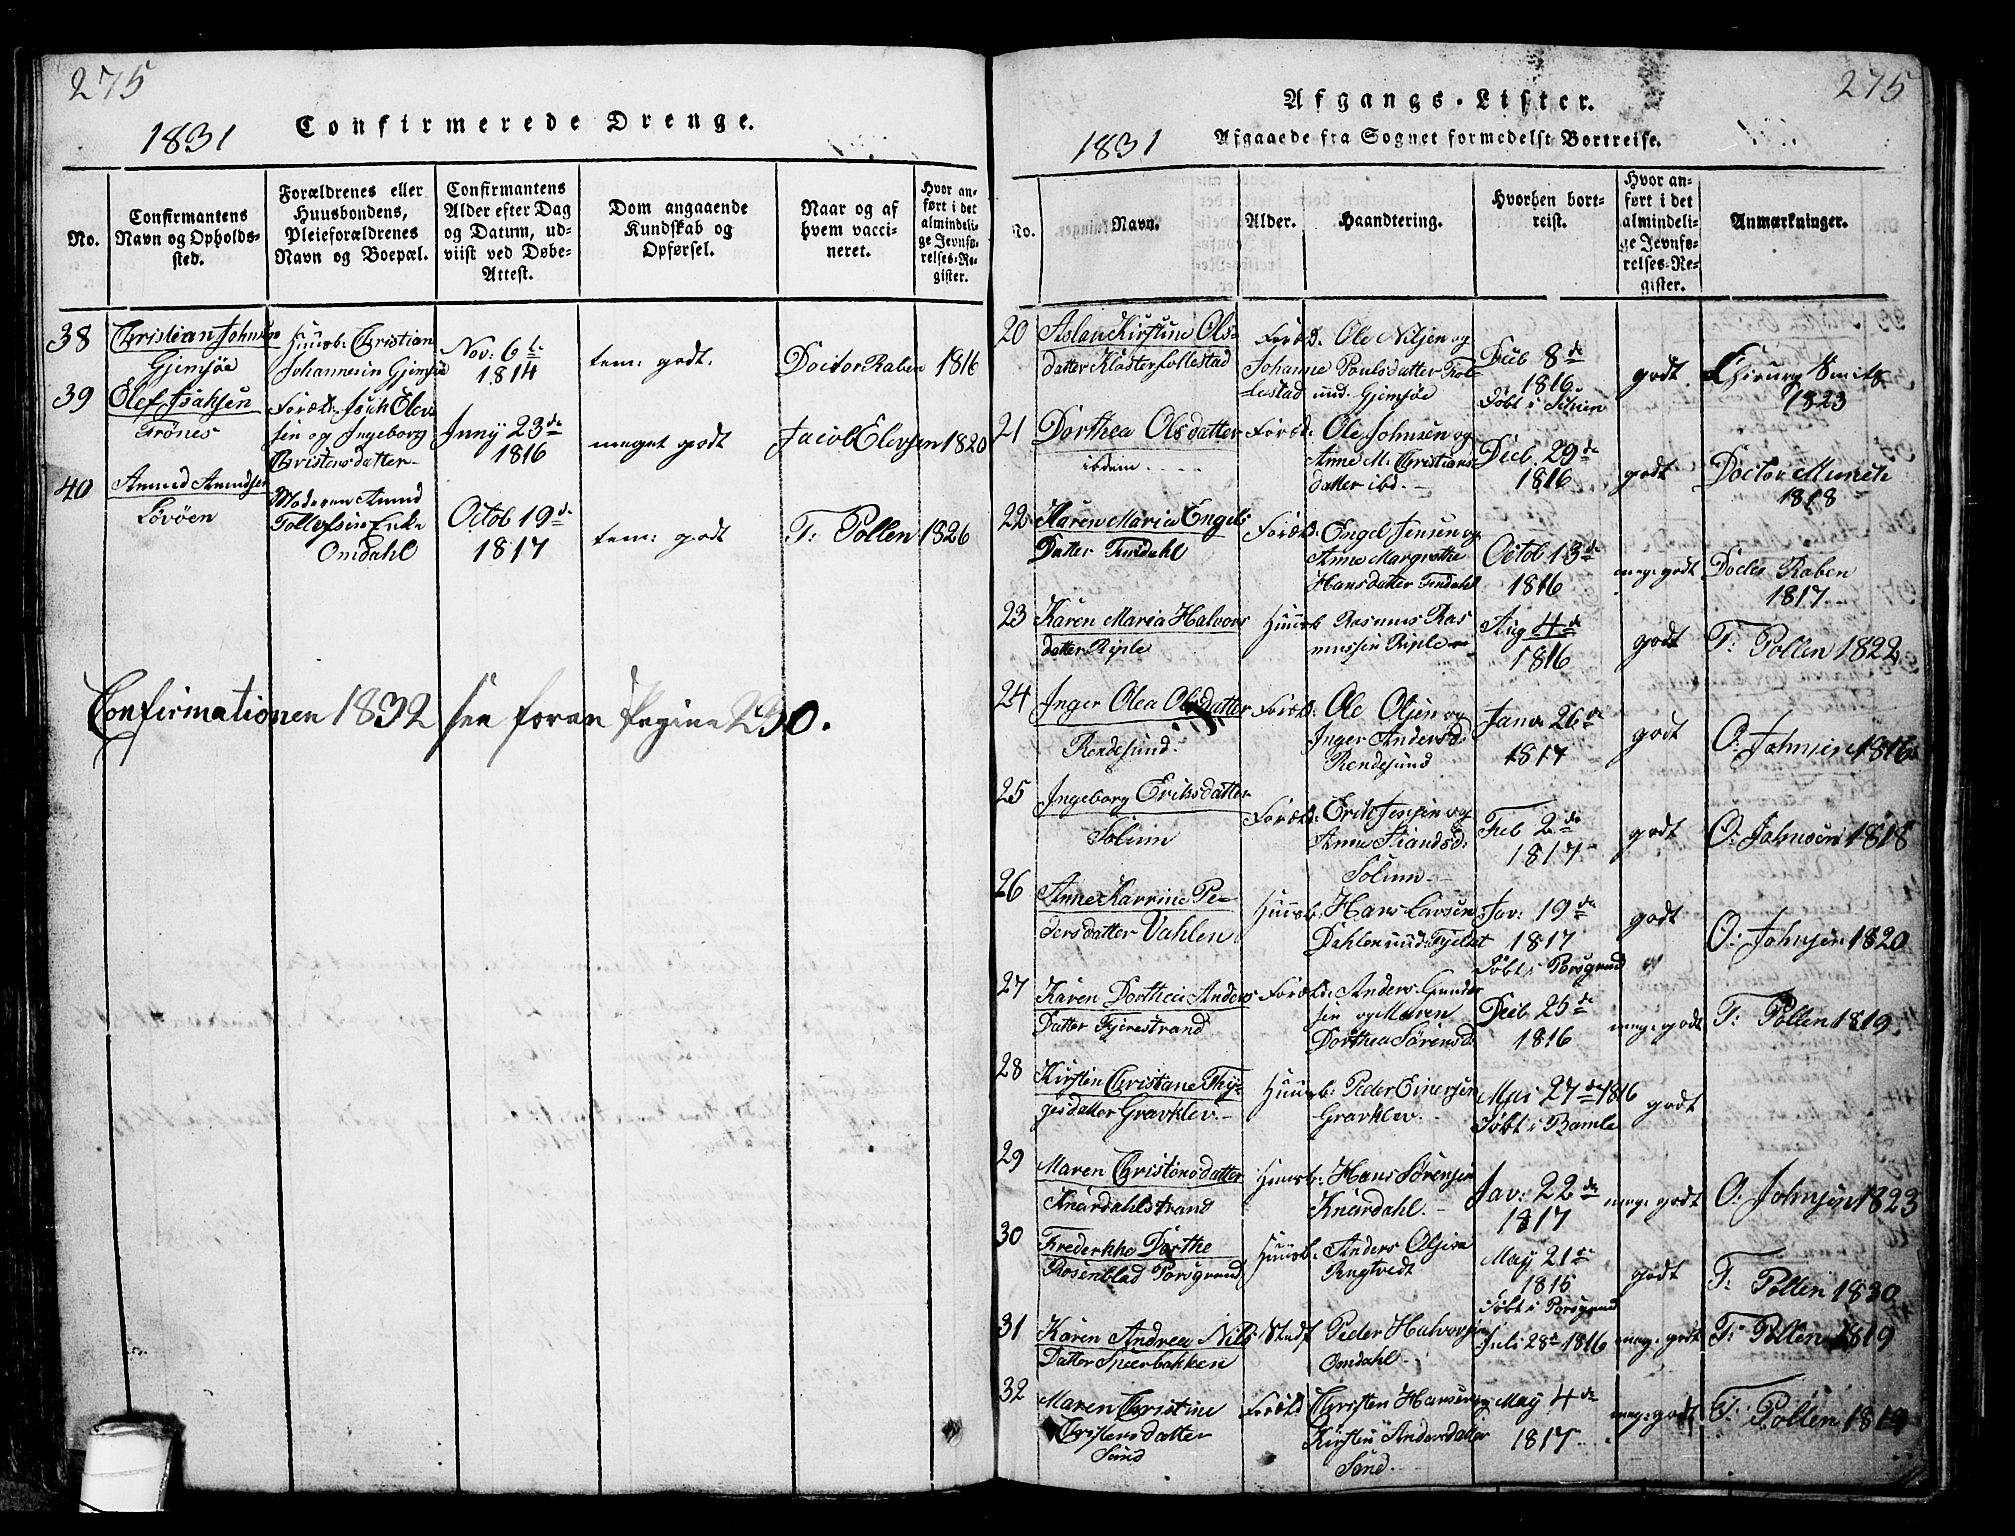 275
1831 Confirmerede Drenge.
No.
Confirmantens
Navn og Opholds-
sted.
Forældrenes eller
Huusbondens,
Pleieforældrenes
Navn og Boepæl.
Confirmantens
Alder efter Dag
og Datum, ud-
viist ved Døbe-
Attest.
Dom angaaende
Kundskab og
Opførsel.
Naar og af
hvem vacci-
neret.
Hvor an-
ført i det
almindeli-
ge Jevnfø-
relses-Re-
gister.
38
Christian Johnsen
Gjemsøe
Huusb: Christian
Johannesen Gjemsøe
Nov: 6te
1814
tem: godt.
Doctor Raben 1816
39
Olef Isaksen
Trönes
Foræld: Isach Elev
sen og Ingeborg
Christensdatter
Juny 23de
1816
meget godt
Jacob Elevsen 1820
40
Amund Amundsen
Lövöen
Moderen Amund
Tollefsen Enke
Omdahl
Octob 19de
1817
tem: godt
T: Pollen 1826
Confirmationen 1832 see foran Pagina 230.
275
Afgangs-Lister.
1831 Afgaaede fra Sognet formedelst Bortreise.
No.
Navn.
Alder.
Haandtering.
Hvorhen bort-
reist.
Hvor an-
ført i det
almindeli-
ge Jevnfø-
relses-Re-
gister.
Anmærkninger.
20
Aslau Kirstine Ols-
datter Klosterfollestad
Foræld: Ole Nilsen og
Johanne Poulsdatter Fol-
lestad und. Gjemsøe
Deeb 8de
1816
Föbt i Schien
godt
Chirurg Smith
1823
21
Dorthea Olsdatter
ibdem
Foræld: Ole Johnsen og
Anne M. Christians-
datter ibd.
Deeb. 29de
1816
godt
Doctor Munch
1818
22
Karen Maria Engels
Datter Omdahl
Foræld: Engel Jensen og
Anne Margrethe
Hansdatter Omdahl
Octob 13de
1816
meg: godt
Docter Raben
1817
23
Karen Maria Halvors
datter Riple
Huusb Rasmus Ras
mussen Riple
Aug 4de
1816
godt
T: Pollen 1822
24
Inger Olea Olsdatter
Rendesund
Foræld: Ole Olsen og
Inger Andersd:
Rendesund
Janv 26de
1817
godt
O: Johnsen 1816
25
Ingeborg Eriksdatter
Solum
Foræld: Erik Jensen og
Anne
Solum
Feb 2de
1817
godt
O: Johnsen 1818
26
Anne Karrine Pe-
dersdatter Vahlen
Huusb: Hans Larsen
Dahlen und:
Jav: 19de
1817
Föbt i Porsgrund
godt
O: Johnsen 1820
27
Karen Dorthea Anders
Datter Fjerestrand
Foræld: Anders Gunder
sen og Maren
Dorthea Sörensd:
Deeb 25de
1816
meg: godt
T: Pollen 1819.
28
Kirsten Christiane Thy-
gesdatter Gravklev.
Huusb: Peder Einersen
Gravklev.
Mai 27de 1816
Föbt i Bamle
godt
29
Maren Christensdatter
Knardahlstrand
Huusb: Hans Sörensen
Knardahl.
Jav: 22de
1817
meg: godt
O: Johnsen 1823
30
Frederikke Dorthe
Rosenblad Porsgrund
Huusb: Anders Olsen
Rugtvedt
May 21de
1815
Föbt i Porsgrund
godt
T: Pollen 1830
31
Karen Andrea Nils
Datter Speerbakken
Stedf Peder Halvorsen
Omdahl.
Juli 28de 1816
meg: godt
T: Pollen 1819
32
Maren Christine
Christensdatter
Sund
Foræld Christen Hansen og
Kirsten Andersdatter
Sund.
May 4de
1817
meg: godt
T: Pollen 1819